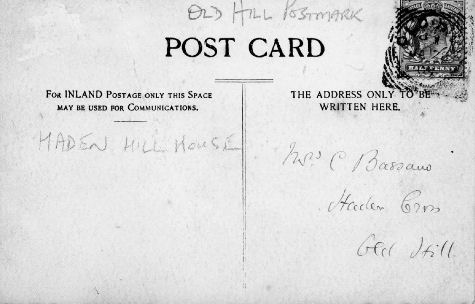 OLD HILL POSTMARK
POST CARD
HALFPENNY
FOR INLAND POSTAGE ONLY THIS SPACE
MAY BE USED FOR COMMUNICATIONS.
THE ADDRESS ONLY TO BE
WRITTEN HERE.
HADEN HILL HOUSE
Mrs C Bassano
Haden Cross
Old Hill